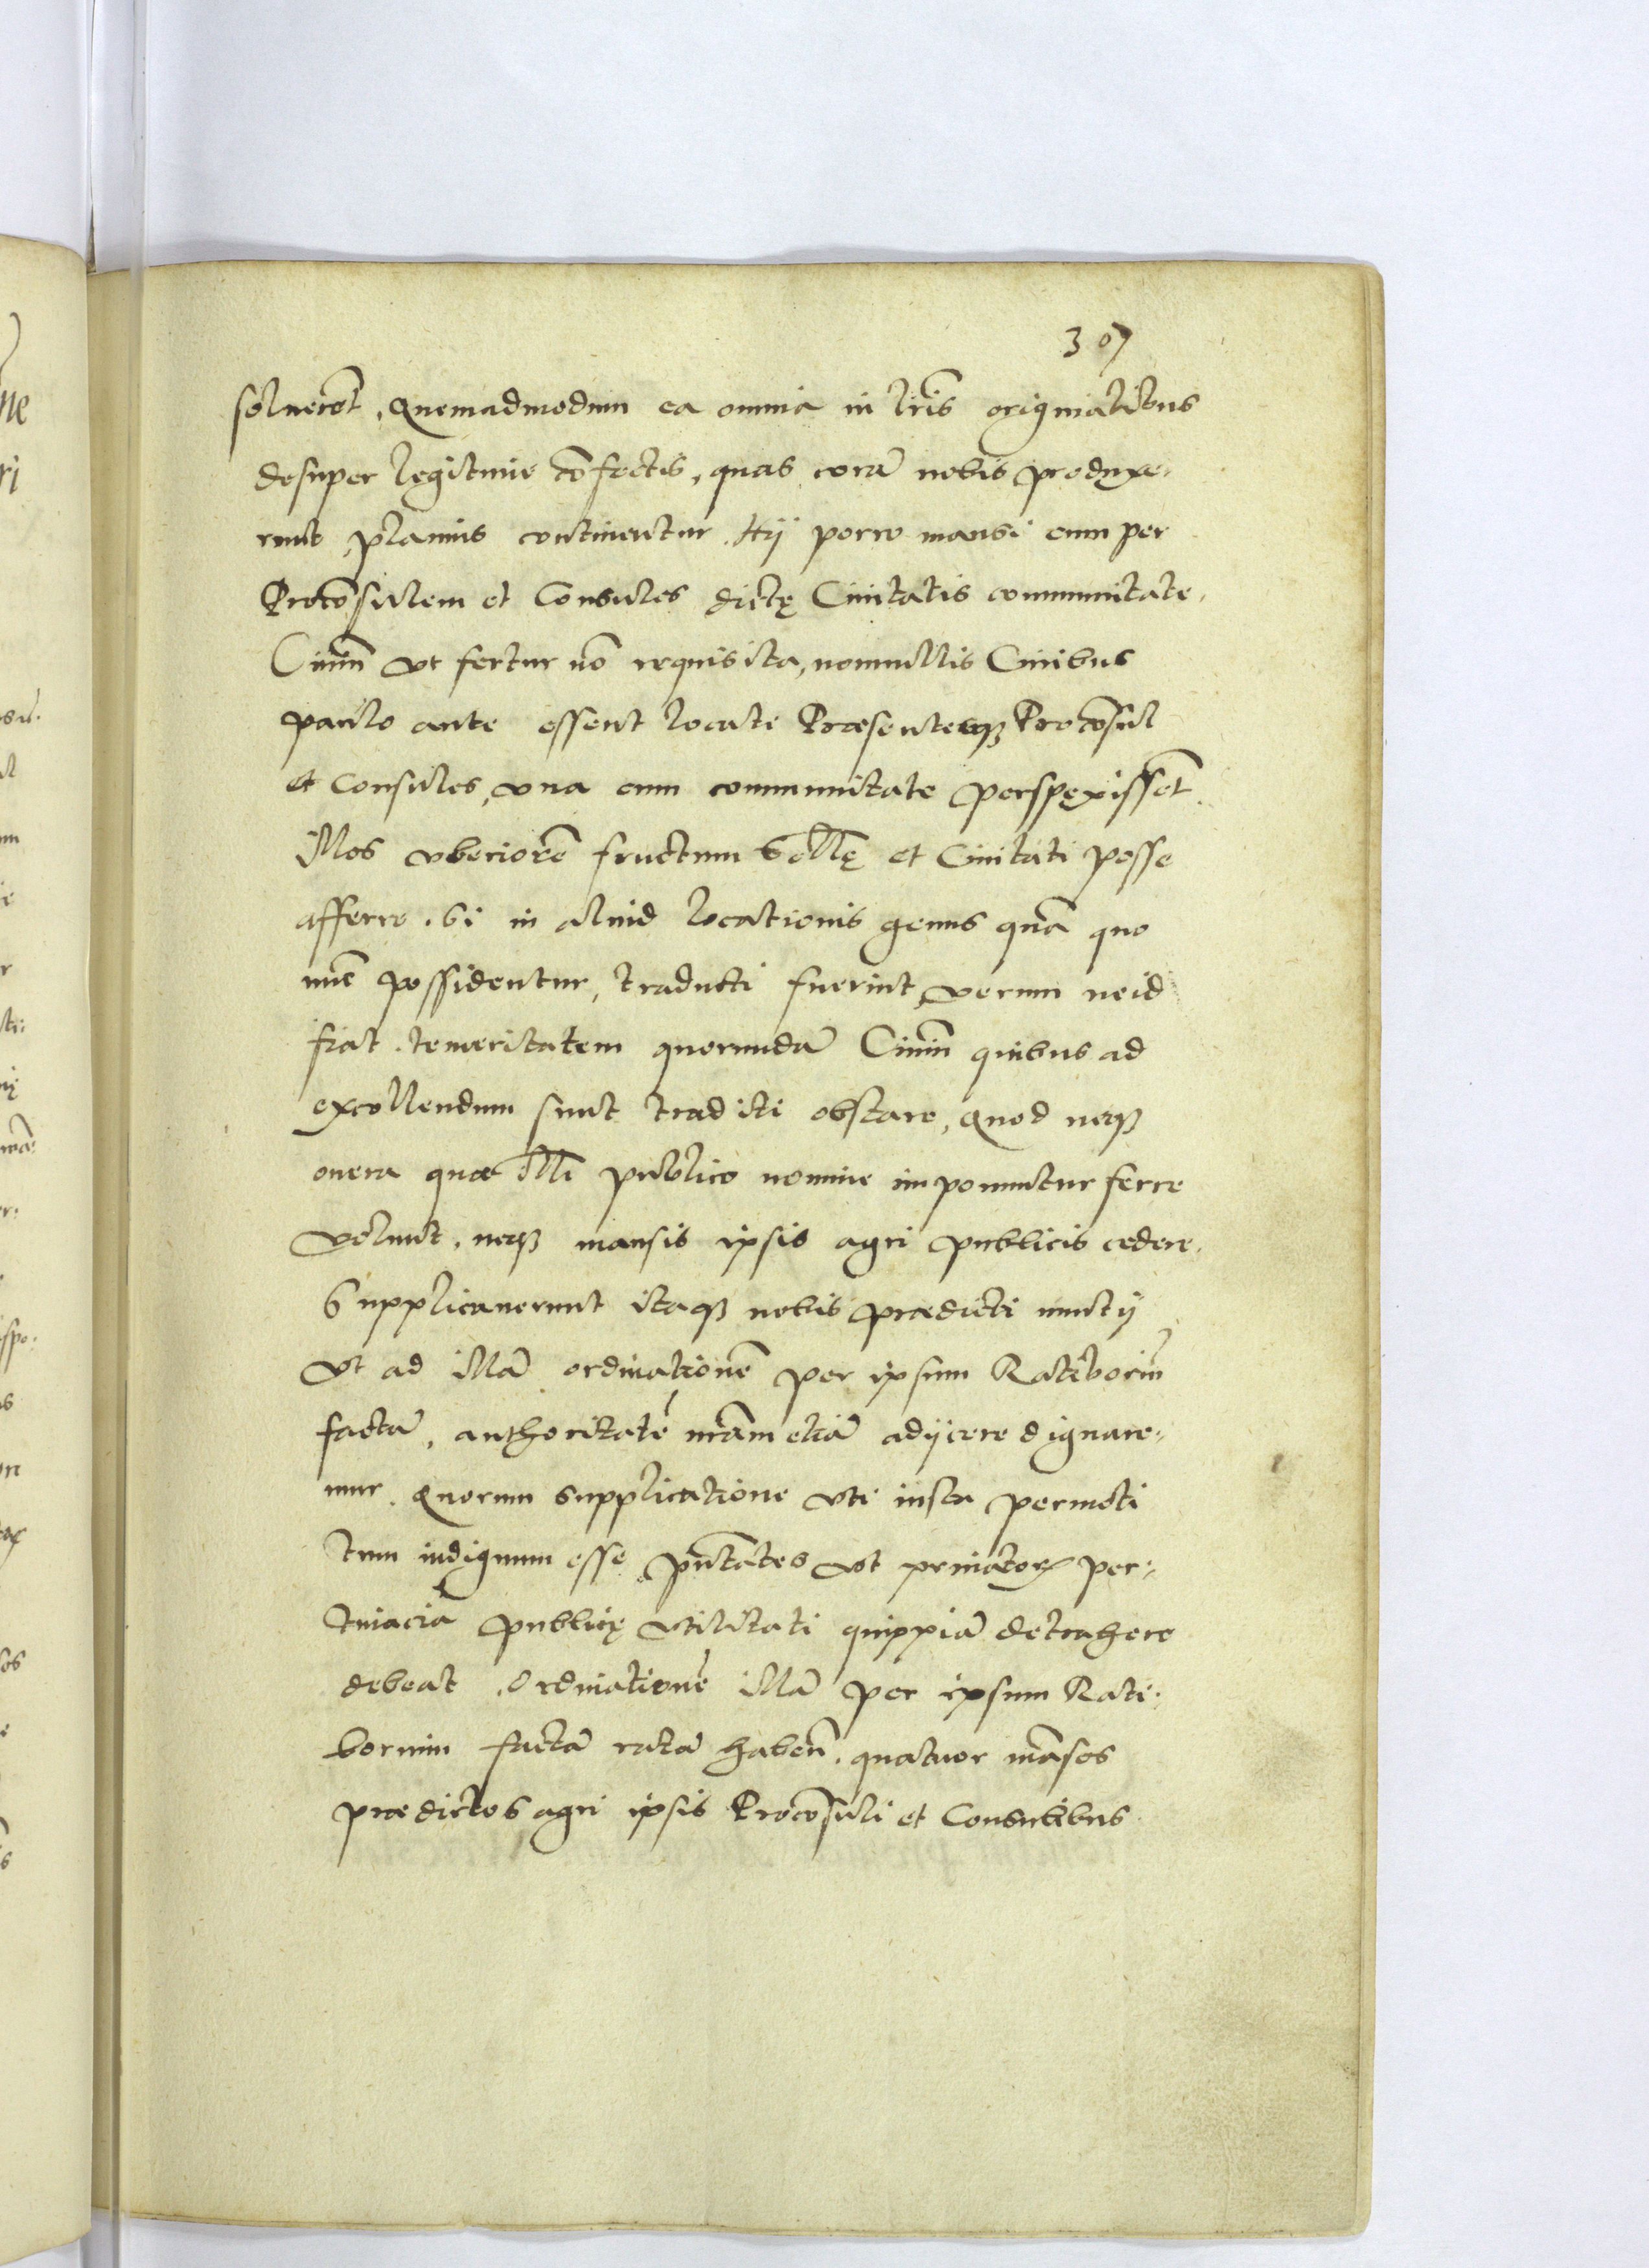 307
solueret, Quemadmodum ea omnia in lris originalibus
desuper legitime cofectis, quas cora nobis produxe,
runt planius continentur. Hij porro mansi cum per
Procosulem et Consules dictę Ciuitatis communitate,
Ciuiu vt fertur no requisita, nonnullis Ciuibus
paulo ante essent locati Præsentesq Procosul
et Consules, vna cum communitate perspexisset
Illos vberiore fructum Scllę et Ciuitati posse
afferre. Si in aliud locationis genus qua quo
nuc possidentur, traducti fuerint, verum ne id
fiat. temeritatem quorunda Ciuiu quibus ad
excollendum sunt traditi obstare, Quod neq
onera quæ illi publico nomine imponuntur ferre
volunt, neq mansis ipsis agri publicis cedere,
Supplicauerunt itaq nobis prædicti nuctij
vt ad illa ordinatione per ipsum Ratiboriu
facta, authoritate nram etia adijcere dignare,
mur. Quorum supplicatione vti iusta permoti
tum indignum esse putates vt priuator per,
tinacia publicę vtilitati quippia detrahere
debeat. Ordinatione illa per ipsum Rati,
borium facta rata haben. quatuor masos
prædictos agri ipsis Procosuli et Consulibus